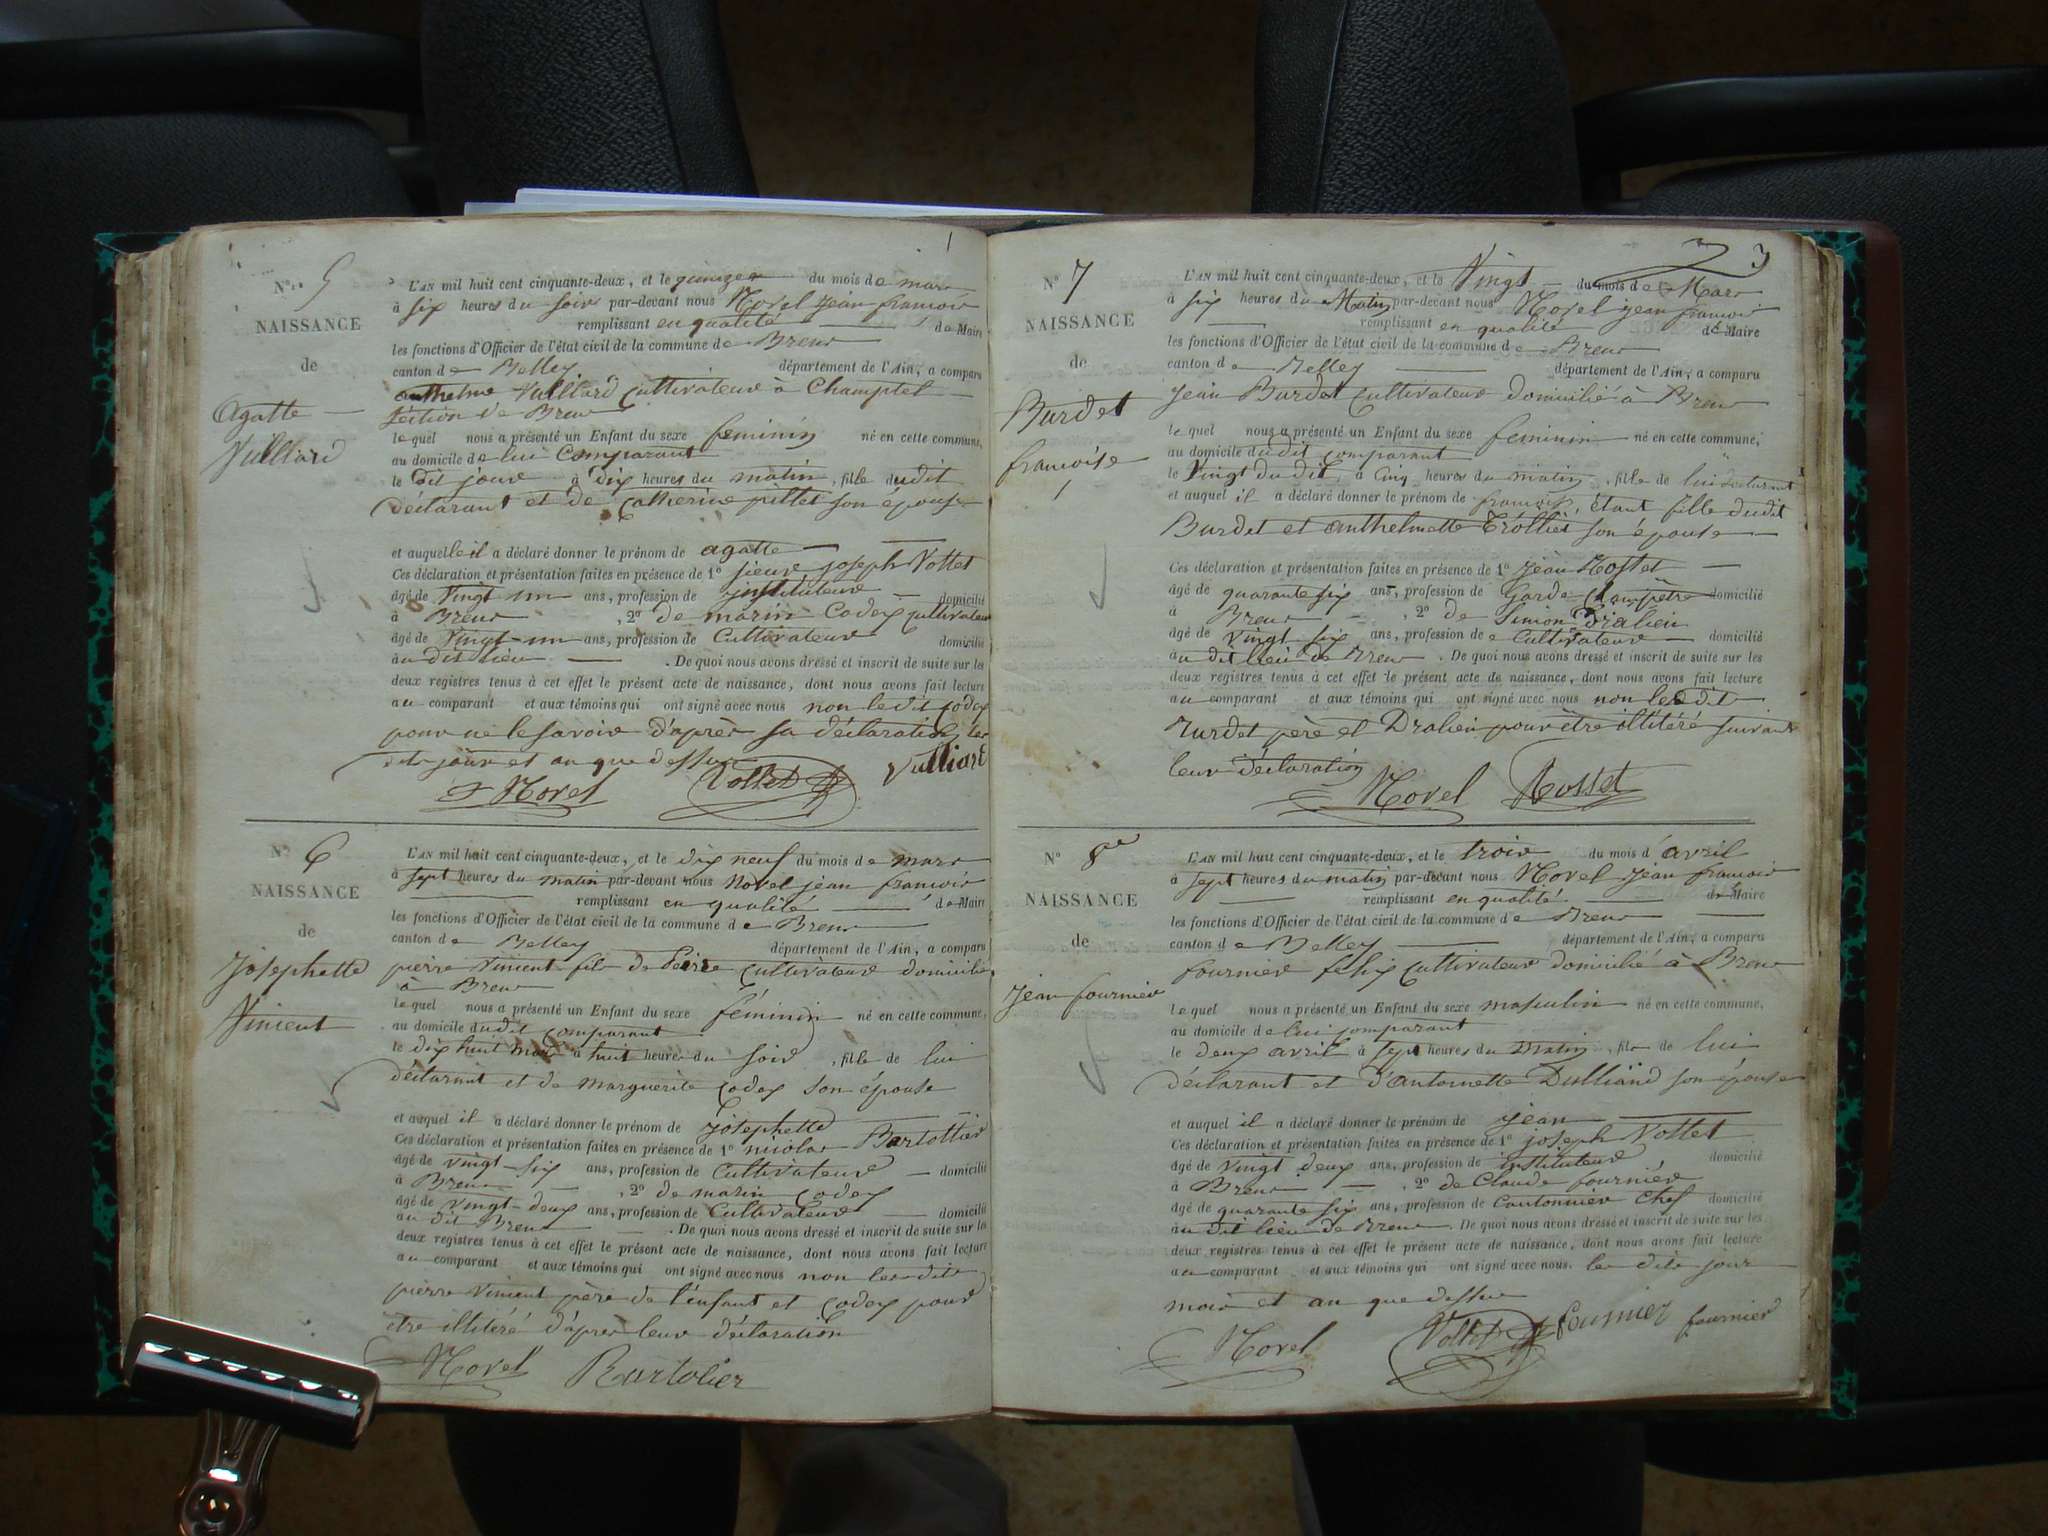 N° 5
NAISSANCE
de
Agatte
Vulliard
L'AN mil huit cent cinquante-deux, et le quinze du mois de mars
à six heures du soir par-devant nous Morel jean francois
remplissant en qualité de Maire
les fonctions d'Officier de l'état civil de la commune de Brens
canton de Belley département de l'Ain, a comparu
anthelme Vulliard cultivateur à Champtel
section de Brens
lequel nous a présenté un Enfant du sexe feminin né en cette commune,
au domicile de lui Comparant
le dit jour à dix heures du matin, fille dudit
déclarant et de Catherine pittet son épouse
et auquelle il a déclaré donner le prénom de agatte
Ces déclaration et présentation faites en présence de 1° sieur joseph Vottet
âgé de Vingt un ans, profession de instituteur domicilié
à Brens, 2° de marin Codex cultivateur
âgé de Vingt-un ans, profession de Cultivateur domicilié
au dit lieu. De quoi nous avons dressé et inscrit de suite sur les
deux registres tenus à cet effet le présent acte de naissance, dont nous avons fait lecture
au comparant et aux témoins qui ont signé avec nous non le dit codex
pour ne le savoir d'après sa déclaration les
dits jour et an que dessus
Morel Vottet Vulliard
N° 6
NAISSANCE
de
Josephette
Vincent
L'AN mil huit cent cinquante-deux, et le dix neuf du mois de mars
à sept heures du matin par-devant nous Morel jean francois
remplissant en qualité de Maire
les fonctions d'Officier de l'état civil de la commune de Brens
canton de Belley département de l'Ain, a comparu
pierre Vincent fils de cultivateur domicilié
à Brens
lequel nous a présenté un Enfant du sexe féminin né en cette commune,
au domicile dudit comparant
le dix huit mars à huit heures du soir, fille de lui
déclarant et de marguerite Codex son épouse
et auquel il a déclaré donner le prénom de josephette
Ces déclaration et présentation faites en présence de 1° nicolas Bartollier
âgé de vingt-six ans, profession de Cultivateur domicilié
à Brens, 2° de marin Codex
âgé de vingt-deux ans, profession de Cultivateur domicilié
au dit Brens. De quoi nous avons dressé et inscrit de suite sur les
deux registres tenus à cet effet le présent acte de naissance, dont nous avons fait lecture
au comparant et aux témoins qui ont signé avec nous non les dits
pierre Vincent père de l'enfant et Codex pour
être illitéré d'après leur déclaration
Morel Bartolier
3
N° 7
NAISSANCE
de
Burdet
francoise
L'AN mil huit cent cinquante-deux, et le Vingt du mois de Mars
à six heures du Matin par-devant nous Morel jean francois
remplissant en qualité de Maire
les fonctions d'Officier de l'état civil de la commune de Brens
canton de Belley département de l'Ain, a comparu
jean Burdet cultivateur domicilié à Brens
lequel nous a présenté un Enfant du sexe feminin né en cette commune,
au domicile dudit comparant
le Vingt dudit, à Cinq heures du matin, fille de lui déclarant
et auquel il a déclaré donner le prénom de francoise, étant fille dudit
Burdet et anthelmette Trollier son épouse
Ces déclaration et présentation faites en présence de 1° jean Rosset
âgé de quarante six ans, profession de Garde Champêtre domicilié
à Brens, 2° de Simon Dralien
âgé de vingt six ans, profession de Cultivateur domicilié
au dit lieu de Brens. De quoi nous avons dressé et inscrit de suite sur les
deux registres tenus à cet effet le présent acte de naissance, dont nous avons fait lecture
au comparant et aux témoins qui ont signé avec nous non lesdit
Burdet père et Dralien pour être illitéré suivant
leur déclaration
Morel Rosset
N° 8e
NAISSANCE
de
jean fournier
L'AN mil huit cent cinquante-deux, et le trois du mois d'avril
à sept heures du matin par-devant nous Morel jean francois
remplissant en qualité de Maire
les fonctions d'Officier de l'état civil de la commune de Brens
canton de Belley département de l'Ain, a comparu
fournier felix cultivateur domicilié à Brens
lequel nous a présenté un Enfant du sexe masculin né en cette commune,
au domicile de lui comparant
le deux avril à sept heures du matin, fils de lui
déclarant et d'antoinette Dulliand son épouse
et auquel il a déclaré donner le prénom de jean
Ces déclaration et présentation faites en présence de 1° joseph Vottet
âgé de vingt deux ans, profession de instituteur domicilié
à Brens, 2° de Claude fournier
âgé de quarante six ans, profession de Cantonnier Chef domicilié
au dit lieu de Brens. De quoi nous avons dressé et inscrit de suite sur les
deux registres tenus à cet effet le présent acte de naissance, dont nous avons fait lecture
au comparant et aux témoins qui ont signé avec nous. les dits jour
mois et an que dessus
Morel Vottet fournier fournier